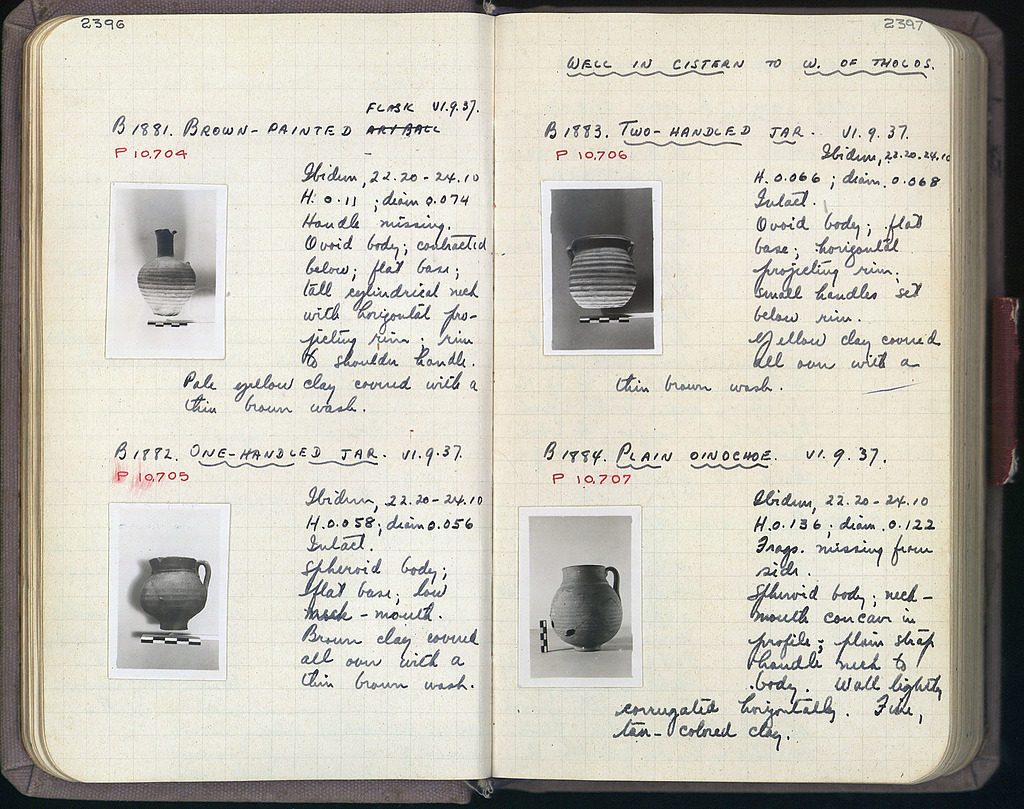 2396
FLASK VI.9.37.
B1881. BROWN-PAINTED ARYBALL
P 10,704
Ibidum, 22.20-24.10
H. 0.11 ; diam 0.074
Handle missing.
Ovoid body; contracted
below; flat base;
tall cylindrical neck
with horizontal pro-
jecting rim; rim
to shoulder handle.
Pale yellow clay covered with a
thin brown wash.
B1882. ONE-HANDLED JAR. VI.9.37.
P 10,705
Ibidum, 22.20-24.10
H.0.058; diam 0.056
Intact.
Spheroid body;
flat base; low
neck-mouth.
Brown clay covered
all over with a
thin brown wash.
2397
WELL IN CISTERN TO W. OF THOLOS.
B1883. TWO-HANDLED JAR. VI.9.37.
P 10,706
Ibidum, 22.20-24.10
H. 0.066 ; diam. 0.068
Intact.
Ovoid body; flat
base; horizontal
projecting rim.
Small handles set
below rim.
Yellow clay covered
all over with a
thin brown wash.
B1884. PLAIN OINOCHOE. VI.9.37.
P 10,707
Ibidum, 22.20-24.10
H.0.136 ; diam. 0.122
Frags. missing from
side.
Spheroid body; neck-
mouth concave in
profile; plain strap
handle neck to
body. Wall lightly
corrugated horizontally. Fine,
tan-colored clay.